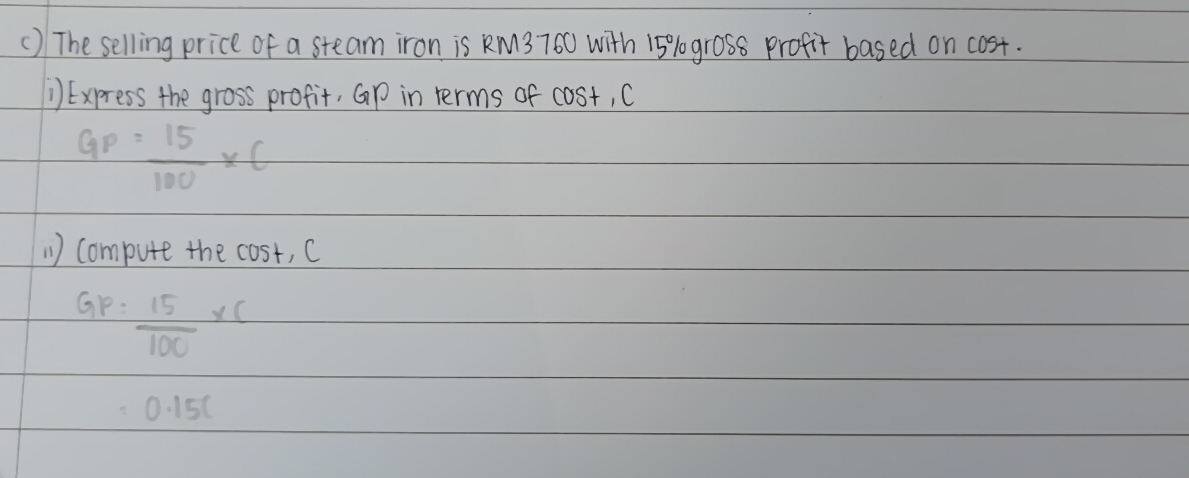 c) The selling price of a steam iron is RM3760 with 15% gross profit based on cost.
i) Express the gross profit, GP in terms of cost, C
GP = 15/100 x C
ii) Compute the cost, C
GP = 15/100 x C
= 0.15C